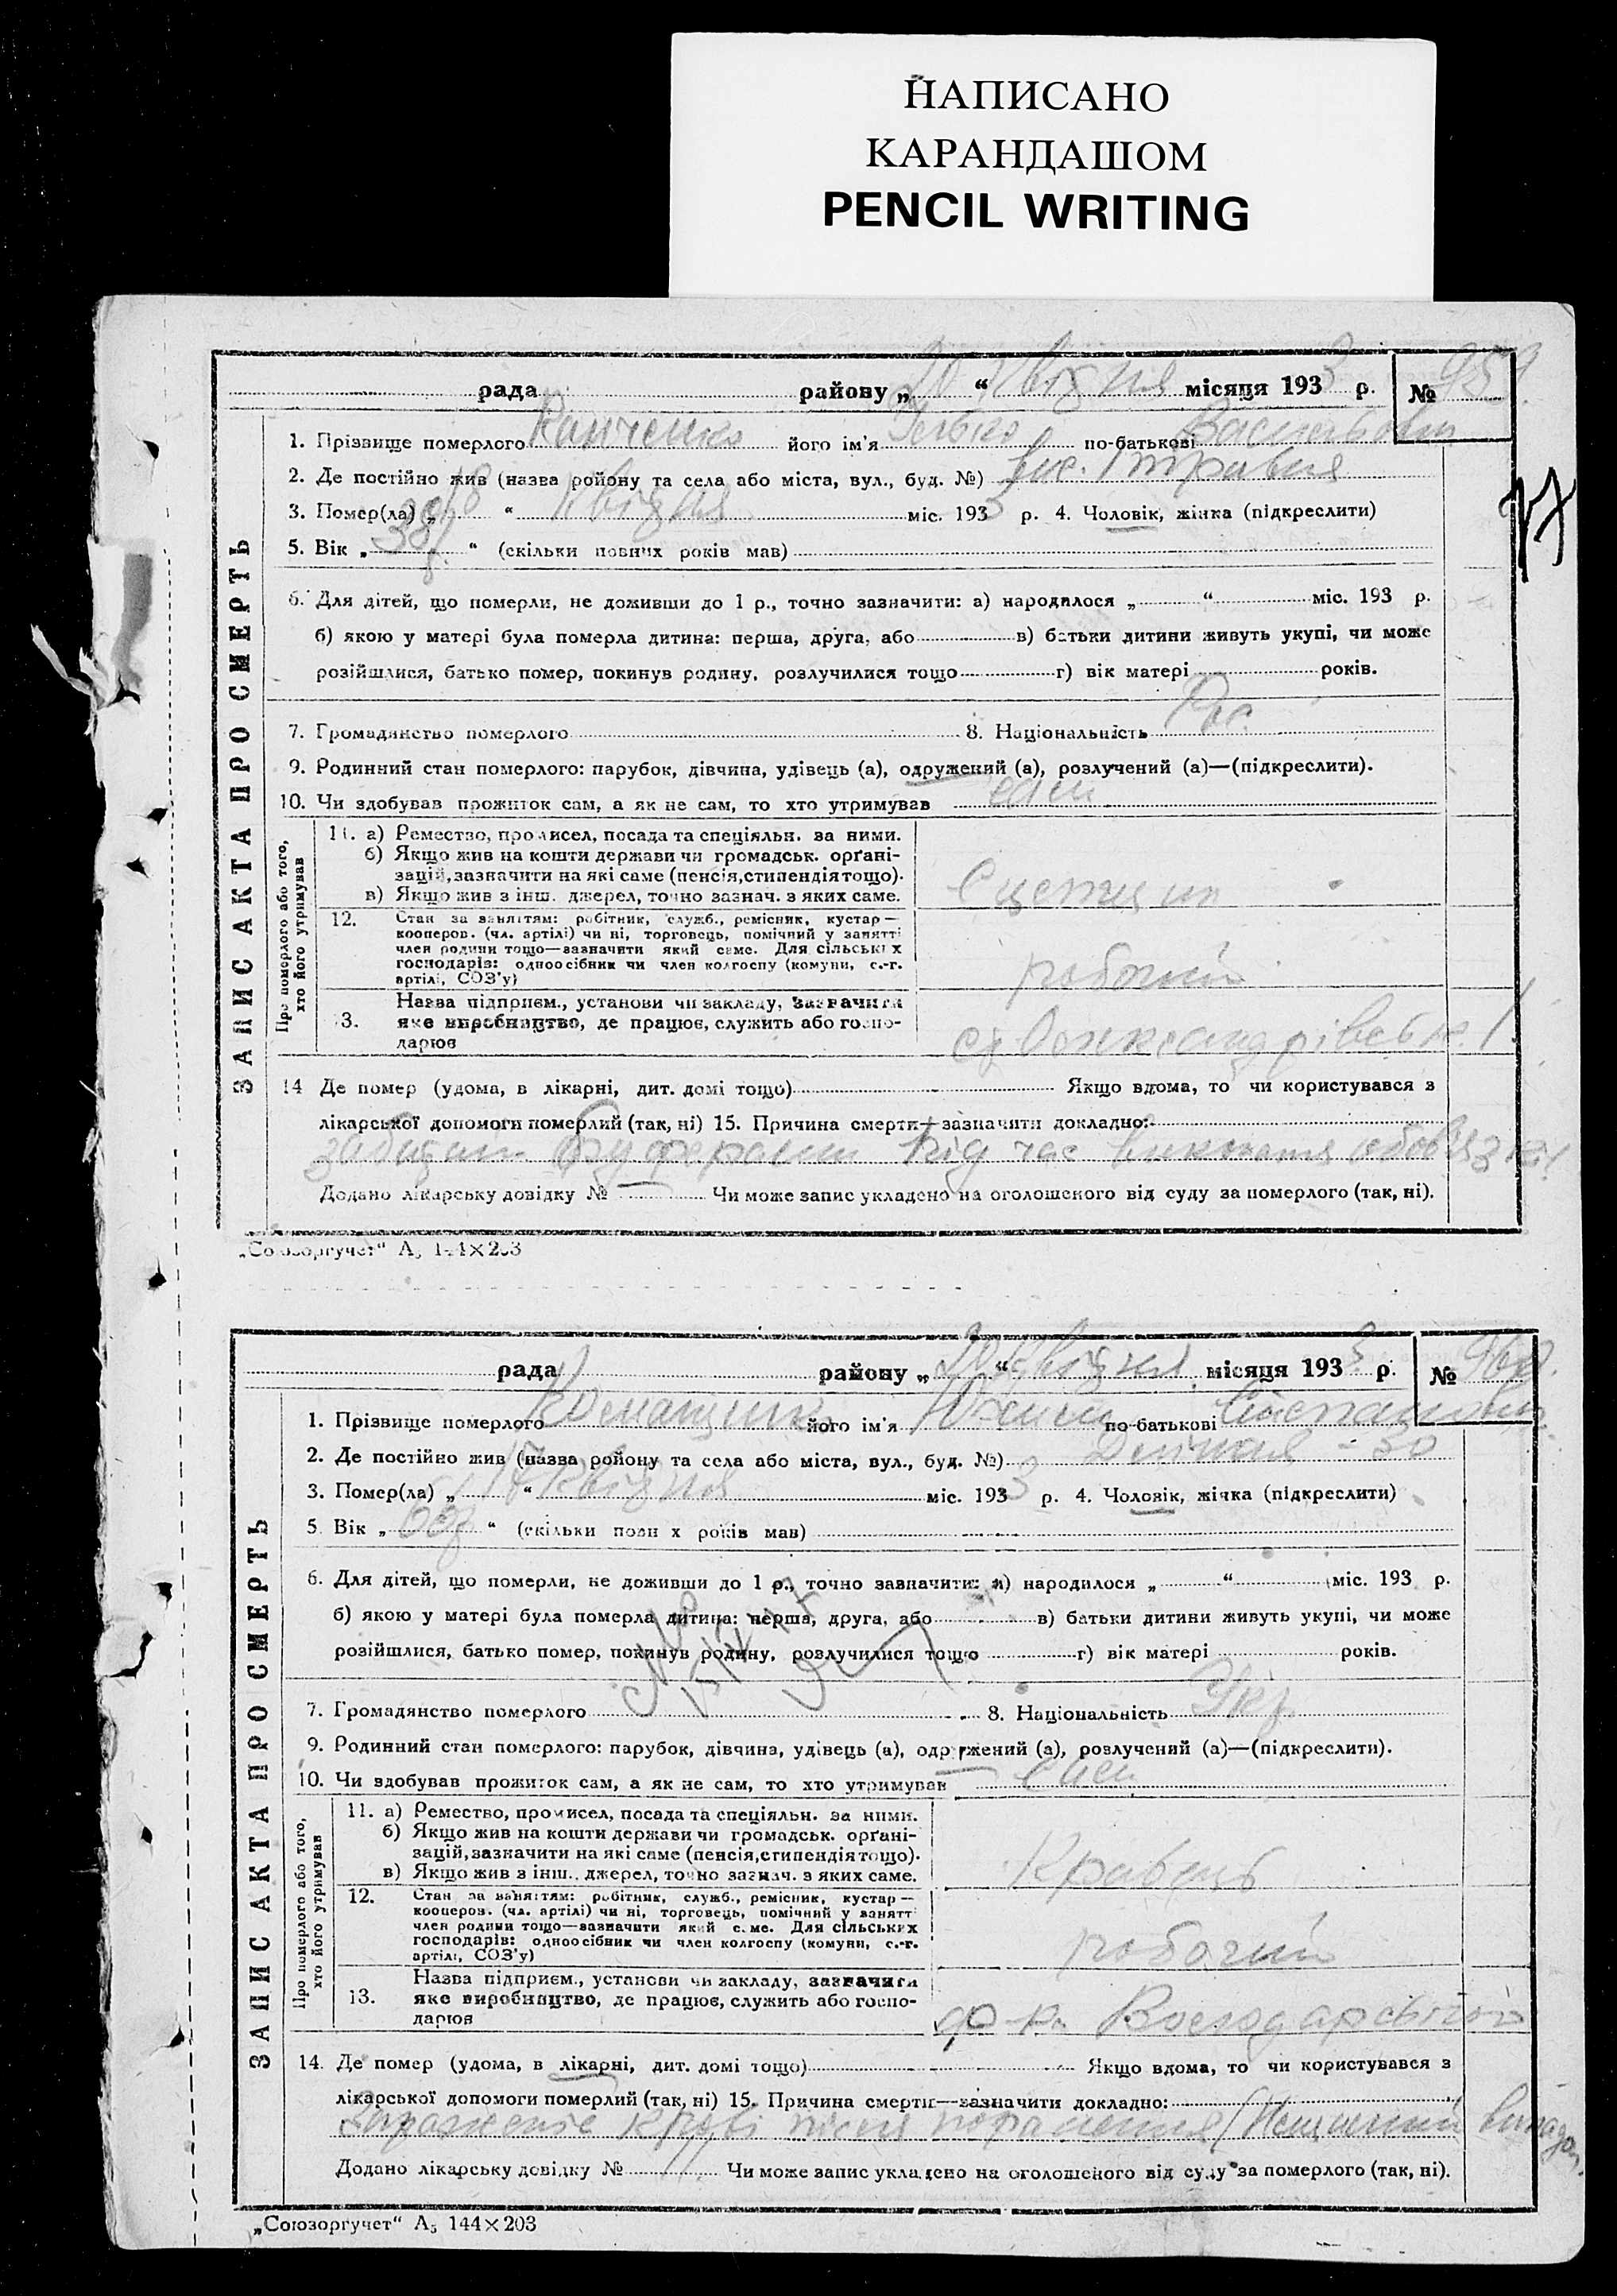 НАПИСАНО
КАРАНДАШОМ
PENCIL WRITING
рада району „20“ квітня місяця 1933 р. № 959
1. Прізвище померлого його ім'я по-батькові Васильович
2. Де постійно жив (назва ройону та села або міста, вул., буд. №) вул. 1 травня
3. Помер(ла) „18“ квітня міс. 1933 р. 4. Чоловік, жінка (підкреслити)
5. Вік „38“ (скільки повних років мав)
6. Для дітей, що померли, не доживши до 1 р., точно зазначити: а) народилося „ “ міс. 193 р.
б) якою у матері була померла дитина: перша, друга, або в) батьки дитини живуть укупі, чи може
розійшлися, батько помер, покинув родину, розлучилися тощо г) вік матері років.
7. Громадянство померлого 8. Національність Рос.
9. Родинний стан померлого: парубок, дівчина, удівець (а), одружений (а), розлучений (а)—(підкреслити).
10. Чи здобував прожиток сам, а як не сам, то хто утримував сам
ЗАПИС АКТА ПРО СМЕРТЬ
Про померлого або того,
хто його утримував
11. а) Ремество, промисел, посада та спеціяльн. за ними.
б) Якщо жив на кошти держави чи громадськ. орґані-
зацій, зазначити на які саме (пенсія, стипендія тощо).
в) Якщо жив з інш. джерел, точно зазнач. з яких саме.
Сцепщик
12. Стан за заняттям: робітник, служб., ремісник, кустар —
кооперов. (чл. артілі) чи ні, торговець, помічний у занятті
член родини тощо—зазначити який саме. Для сільських
господарів: одноосібник чи член колгоспу (комуни, с.-г.
артілі, СОЗ'у)
робочий
13. Назва підприєм., установи чи закладу, зазначити
яке виробництво, де працює, служить або госпо-
дарює
14 Де помер (удома, в лікарні, дит. домі тощо) Якщо вдома, то чи користувався з
лікарської допомоги померлий (так, ні) 15. Причина смерти—зазначити докладно:
буферами під час виконання обов'язків
Додано лікарську довідку № Чи може запис укладено на оголошеного від суду за померлого (так, ні).
„Союзоргучет“ А₅ 144×203
рада району „20“ квітня місяця 1933 р. № 960
1. Прізвище померлого його ім'я по-батькові Степанович
2. Де постійно жив (назва ройону та села або міста, вул., буд. №) 30
3. Помер(ла) „17“ квітня міс. 1933 р. 4. Чоловік, жінка (підкреслити)
5 Вік „ “ (скільки повних років мав)
6. Для дітей, що померли, не доживши до 1 р., точно зазначити: а) народилося „ “ міс. 193 р.
б) якою у матері була померла дитина: перша, друга, або в) батьки дитини живуть укупі, чи може
розійшлися, батько помер, покинув родину, розлучилися тощо г) вік матері років.
7. Громадянство померлого 8. Національність Укр.
9. Родинний стан померлого: парубок, дівчина, удівець (а), одружений (а), розлучений (а)—(підкреслити).
10. Чи здобував прожиток сам, а як не сам, то хто утримував сам
ЗАПИС АКТА ПРО СМЕРТЬ
Про померлого або того,
хто його утримував
11. а) Ремество, промисел, посада та спеціяльн. за ними.
б) Якщо жив на кошти держави чи громадськ. орґані-
зацій, зазначити на які саме (пенсія, стипендія тощо).
в) Якщо жив з інш. джерел, точно зазнач. з яких саме.
Кравець
12. Стан за заняттям: робітник, служб., ремісник, кустар —
кооперов. (чл. артілі) чи ні, торговець, помічний у занятті
член родини тощо—зазначити який саме. Для сільських
господарів: одноосібник чи член колгоспу (комуни, с.-г.
артілі, СОЗ'у)
робочий
13. Назва підприєм., установи чи закладу, зазначити
яке виробництво, де працює, служить або госпо-
дарює
ф-ка
14. Де помер (удома, в лікарні, дит. домі тощо) Якщо вдома, то чи користувався з
лікарської допомоги померлий (так, ні) 15. Причина смерти—зазначити докладно:
крові після поранення
Додано лікарську довідку № Чи може запис укладено на оголошеного від суду за померлого (так, ні).
„Союзоргучет“ А₅ 144×203